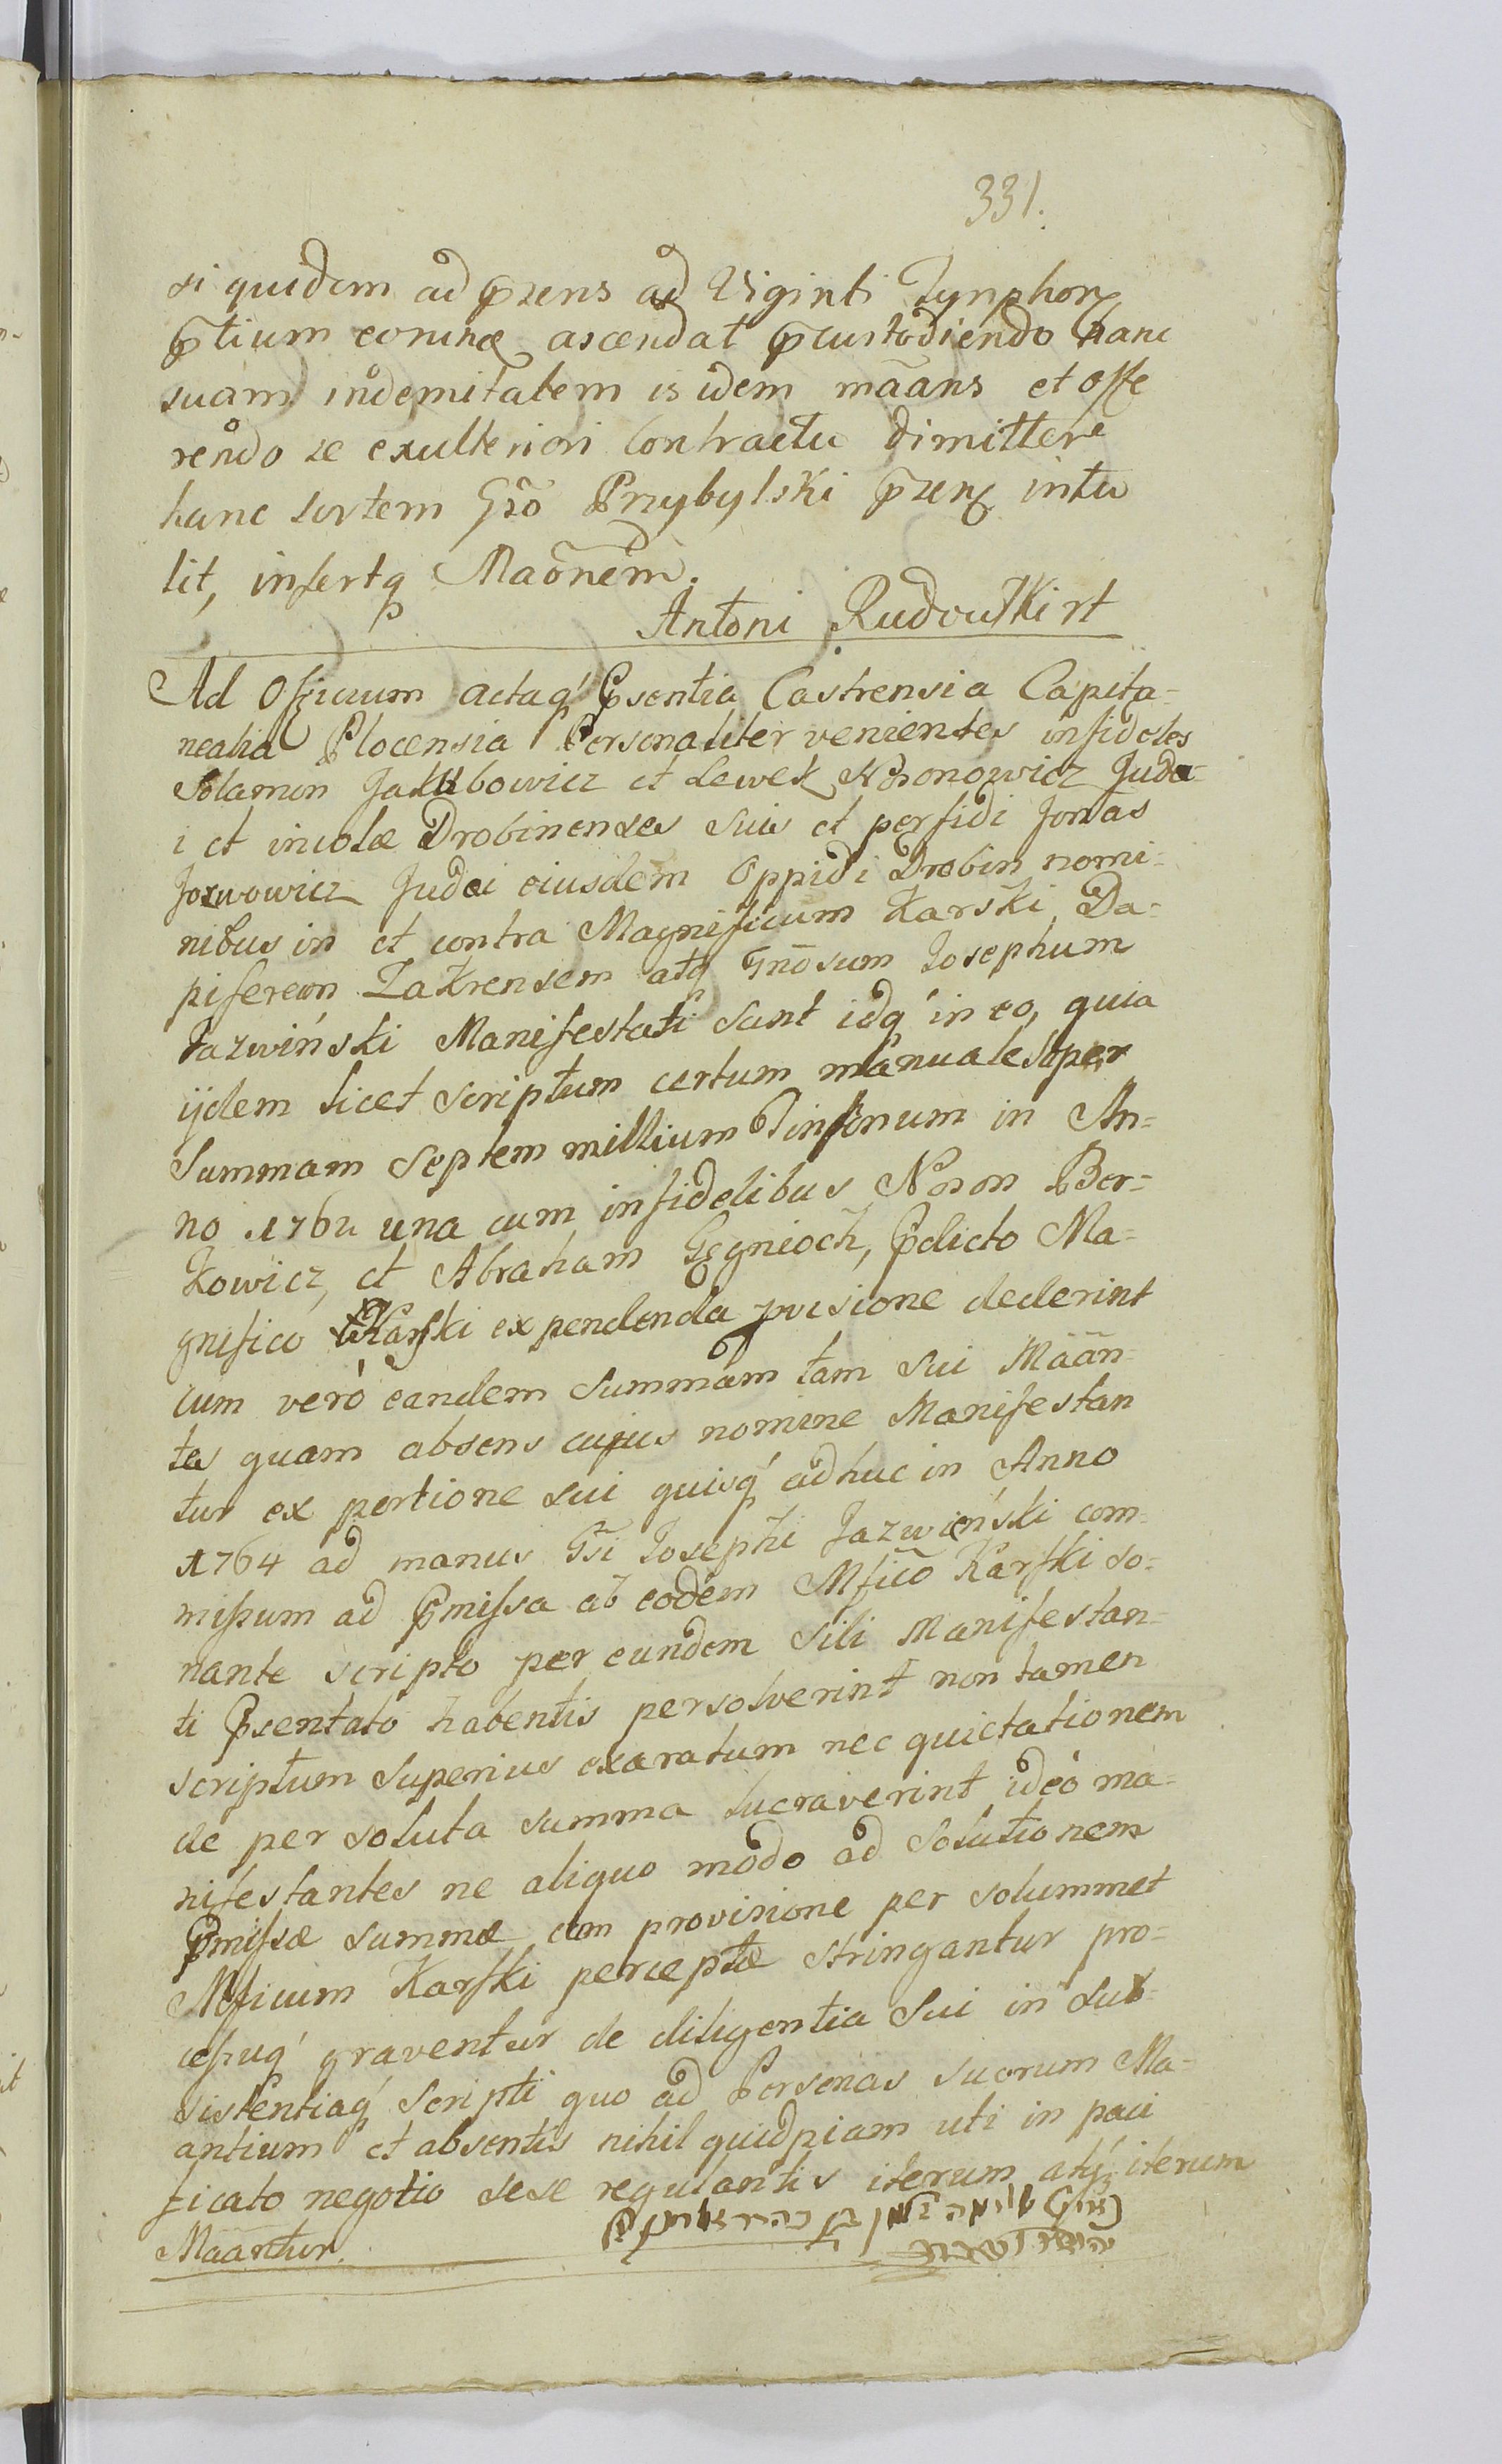 331.
si quidem ad p̄zens ad Viginti Tynphorꝝ
p̄tium eorundꝫ ascendat p̄custodiendo hanc
suam indemitatem is idem mãans et offe
rendo se exulteriori Contractu dimittere
hanc sortem Gzõ Przybylski p̄zenꝫ intu
lit, infertq Maõnem.
Antoni Rudowski rt
Ad Officium actaq́ P̄sentia Castrensia Capita=
nealia Plocensia Personaliter venientes infideles
Solamon Jakubowicz et Lewek Nosonowicz Juda=
i et incolæ Drobinenses suis et perfidi Jonas
Jozwowicz Judæi eiusdem Oppidi Drobin nomi=
nibus in et contra Magnificum Karski Da=
piferum Zakrensem atq̃ Gñosum Josephum
Jazwiński Manifestati sunt idq́ in eo, quia
ijdem licet scriptum certum manuale super
Summam septem millium Tinfonum in An=
no 1762 una cum infidelibus Noson Ber=
kowicz, et Abraham Gęgnioch, P̄dicto Ma=
gnifico Karski expendenda provisione dederint
cum verò eandem summam tam sui Mãan=
tes quam absens cujus nomine Manifestan
tur ex portione sui quisq́ adhuc in Anno
1764 ad manus Gsi Josephi Jazwiński com=
missum ad P̄missa ab eodem Mficõ Karski so=
nante scripto per eundem Sibi Manifestan=
ti P̄sentato habentis persolverint non tamen
scriptum superius exaratum nec quietationem
de per soluta summa lucraverint ideò ma=
nifestantes ne aliquo modo ad solutionem
P̄missæ summæ cum provisione per solummet
Mficum Karski perceptæ stringantur pro=
cessuq́ graventur de diligentia sui in sub=
sistentiaq́ scripti quo ad Personas suorum Ma=
antium et absentis nihil quidpiam uti in paci
ficato negotio sese regulantis iterum atq̃ iterum
Mãantur.